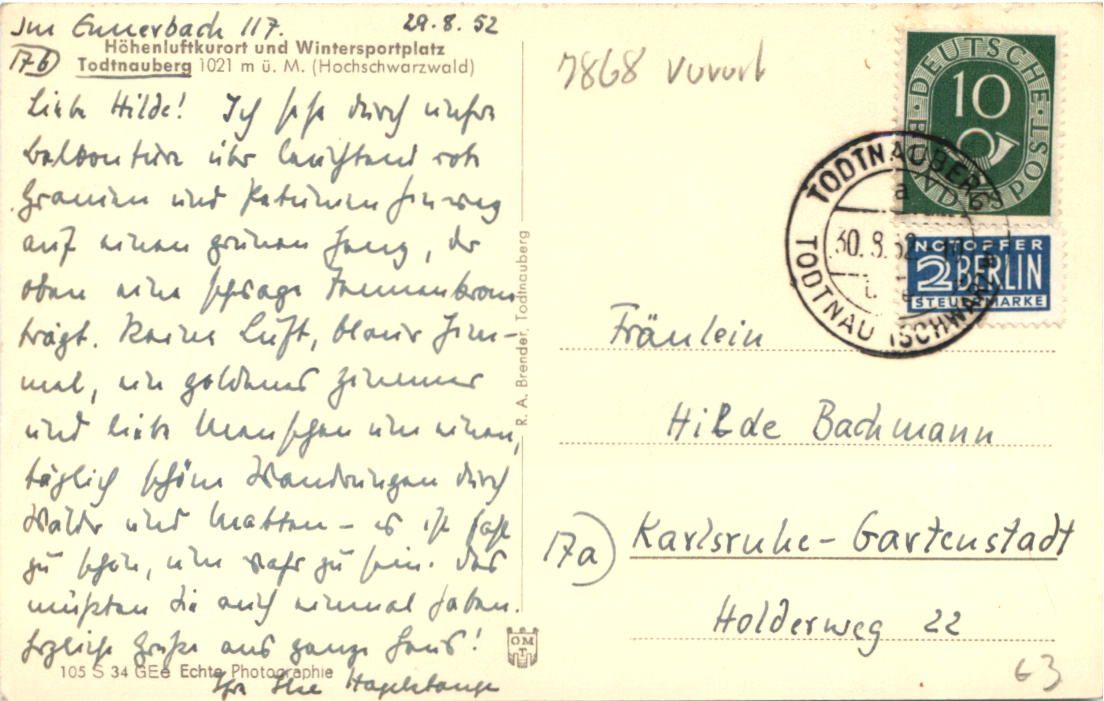 Im Ennerbach 117. 29.8.52
17b
Höhenluftkurort und Wintersportplatz
Todtnauberg 1021 m ü. M. (Hochschwarzwald)
Liebe Hilde! Ich sehe durch unsre
Balkontüre über leuchtend rote
Granien und Petunien hinweg
auf einen grünen Hang, der
oben eine schräge Tannenkrone
trägt. Reine Luft, blauer Him-
mel, ein goldenes Zimmer
und liebe Menschen um einen,
täglich schöne Wanderungen durch
Wälder und Matten – es ist fast
zu schön, um wahr zu sein. Das
müßten Sie auch einmal haben.
Herzliche Grüße ans ganze Haus!
Ihre Hagelstange
105 S 34 GEe Echte Photographie
R. A. Brender, Todtnauberg
OMT
7868
DEUTSCHE BUNDESPOST
10
NOTOPFER
2 BERLIN
STEUERMARKE
TODTNAUBERG
a
30.8.52
TODTNAU (SCHWARZW)
Fräulein
Hilde Bachmann
17a) Karlsruhe-Gartenstadt
Holderweg 22
63